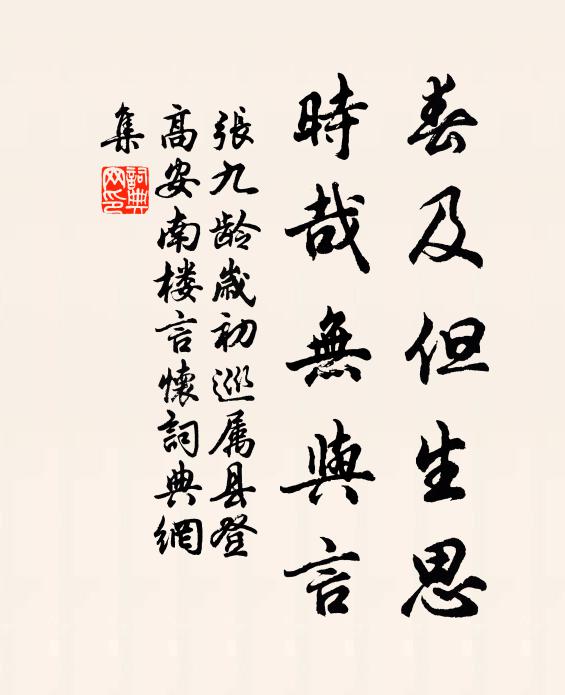 春及但生思
時哉無與言
張九龄歲初巡属县登
高安南楼言懷詞典網
集
詞典
网印